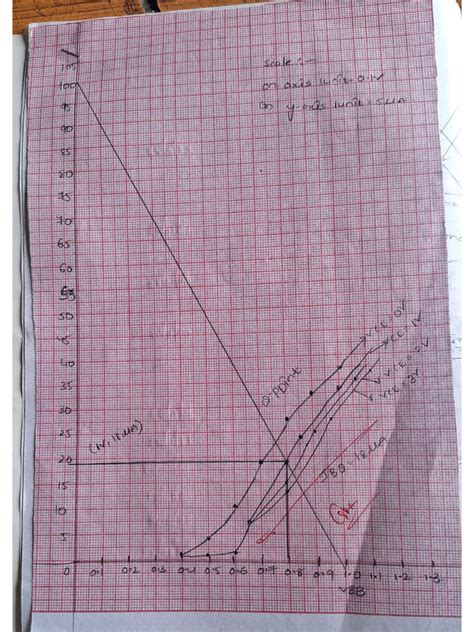 Scale :-
on axis 1unit = 0.1V
On y-axis 1unit = 5μA
105
100
95
90
85
80
75
70
65
60
55
50
45
40
35
30
25
20
15
10
5
0
0.1
0.2
0.3
0.4
0.5
0.6
0.7
0.8
0.9
1.0
1.1
1.2
1.3
VBB
(1V, 18μA)
Q-Point
VCE = 0V
VCE = 1V
VCE = 2V
VCE = 3V
IBQ = 18μA